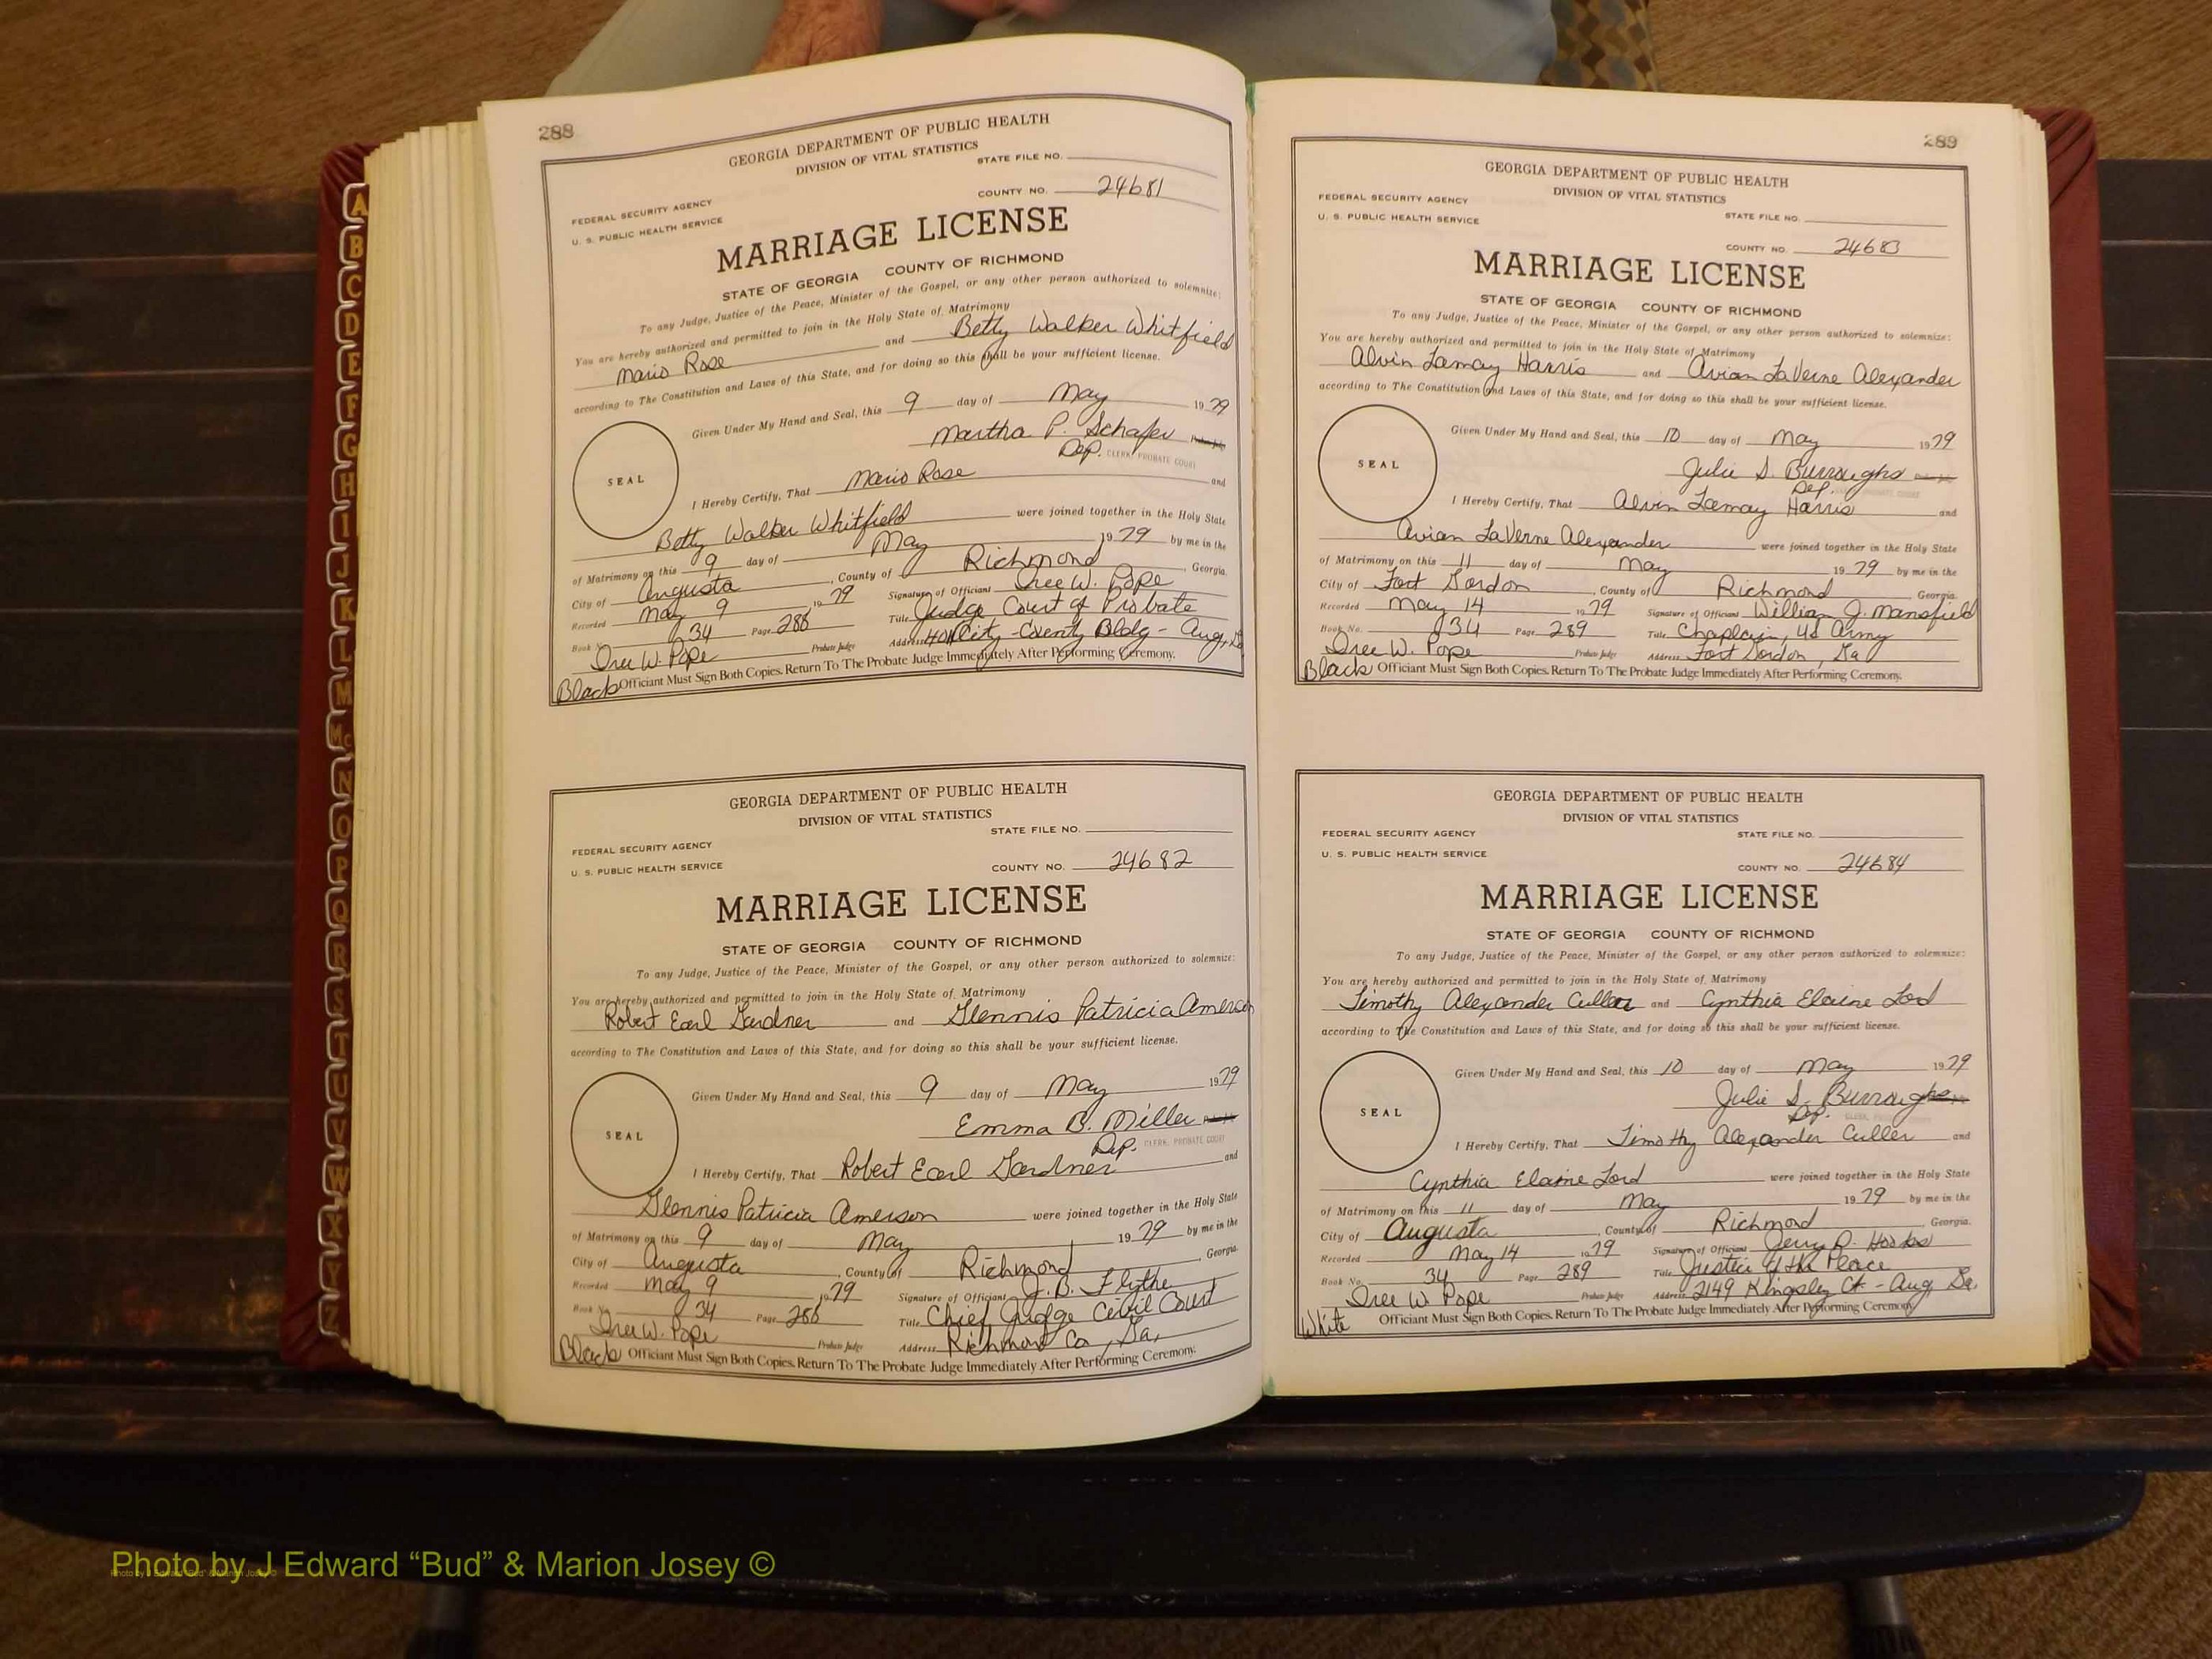 A
B
C
D
E
F
G
H
I
J
K
L
M
Mc
N
O
P
Q
R
S
T
U
V
W
X
Y
Z
288
GEORGIA DEPARTMENT OF PUBLIC HEALTH
DIVISION OF VITAL STATISTICS
STATE FILE NO.
COUNTY NO. 24681
FEDERAL SECURITY AGENCY
U. S. PUBLIC HEALTH SERVICE
MARRIAGE LICENSE
STATE OF GEORGIA COUNTY OF RICHMOND
To any Judge, Justice of the Peace, Minister of the Gospel, or any other person authorized to solemnize:
You are hereby authorized and permitted to join in the Holy State of Matrimony
Mario Rose and Betty Walker Whitfield
according to The Constitution and Laws of this State, and for doing so this shall be your sufficient license.
Given Under My Hand and Seal, this 9 day of May 1979
Martha P. Schafer
Dep. CLERK, PROBATE COURT
SEAL
I Hereby Certify, That Mario Rose and
Betty Walker Whitfield were joined together in the Holy State
of Matrimony on this 9 day of May 1979 by me in the
City of Augusta, County of Richmond, Georgia.
Recorded May 9 1979 Signature of Officiant Iree W. Pope
Book No. 34 Page 288 Title Judge Court of Probate
Iree W. Pope Probate Judge Address 401 City-County Bldg - Aug, Ga
Black Officiant Must Sign Both Copies. Return To The Probate Judge Immediately After Performing Ceremony.
GEORGIA DEPARTMENT OF PUBLIC HEALTH
DIVISION OF VITAL STATISTICS
STATE FILE NO.
FEDERAL SECURITY AGENCY
U. S. PUBLIC HEALTH SERVICE
COUNTY NO. 24682
MARRIAGE LICENSE
STATE OF GEORGIA COUNTY OF RICHMOND
To any Judge, Justice of the Peace, Minister of the Gospel, or any other person authorized to solemnize:
You are hereby authorized and permitted to join in the Holy State of Matrimony
Robert Earl Gardner and Glennis Patricia Amerson
according to The Constitution and Laws of this State, and for doing so this shall be your sufficient license.
Given Under My Hand and Seal, this 9 day of May 1979
Emma B. Miller
Dep. CLERK, PROBATE COURT
SEAL
I Hereby Certify, That Robert Earl Gardner and
Glennis Patricia Amerson were joined together in the Holy State
of Matrimony on this 9 day of May 1979 by me in the
City of Augusta, County of Richmond, Georgia.
Recorded May 9 1979 Signature of Officiant J. B. Flythe
Book No. 34 Page 288 Title Chief Judge Civil Court
Iree W. Pope Probate Judge Address Richmond Co, Ga.
Black Officiant Must Sign Both Copies. Return To The Probate Judge Immediately After Performing Ceremony.
289
GEORGIA DEPARTMENT OF PUBLIC HEALTH
DIVISION OF VITAL STATISTICS
FEDERAL SECURITY AGENCY
U. S. PUBLIC HEALTH SERVICE
STATE FILE NO.
COUNTY NO. 24683
MARRIAGE LICENSE
STATE OF GEORGIA COUNTY OF RICHMOND
To any Judge, Justice of the Peace, Minister of the Gospel, or any other person authorized to solemnize:
You are hereby authorized and permitted to join in the Holy State of Matrimony
Alvin Lamay Harris and Avian LaVerne Alexander
according to The Constitution and Laws of this State, and for doing so this shall be your sufficient license.
Given Under My Hand and Seal, this 10 day of May 1979
Julie S. Burroughs
Dep. PROBATE COURT
SEAL
I Hereby Certify, That Alvin Lamay Harris and
Avian LaVerne Alexander were joined together in the Holy State
of Matrimony on this 11 day of May 1979 by me in the
City of Fort Gordon, County of Richmond, Georgia.
Recorded May 14 1979 Signature of Officiant William J. Mansfield
Book No. 34 Page 289 Title Chaplain, US Army
Iree W. Pope Probate Judge Address Fort Gordon, Ga
Black Officiant Must Sign Both Copies. Return To The Probate Judge Immediately After Performing Ceremony.
GEORGIA DEPARTMENT OF PUBLIC HEALTH
DIVISION OF VITAL STATISTICS
FEDERAL SECURITY AGENCY STATE FILE NO.
U. S. PUBLIC HEALTH SERVICE
COUNTY NO. 24684
MARRIAGE LICENSE
STATE OF GEORGIA COUNTY OF RICHMOND
To any Judge, Justice of the Peace, Minister of the Gospel, or any other person authorized to solemnize:
You are hereby authorized and permitted to join in the Holy State of Matrimony
Timothy Alexander Culler and Cynthia Elaine Lord
according to The Constitution and Laws of this State, and for doing so this shall be your sufficient license.
Given Under My Hand and Seal, this 10 day of May 1979
Julie S. Burroughs
Dep.
SEAL
I Hereby Certify, That Timothy Alexander Culler and
Cynthia Elaine Lord were joined together in the Holy State
of Matrimony on this 11 day of May 1979 by me in the
City of Augusta, County of Richmond Georgia.
Recorded May 14 1979 Signature of Officiant Jerry D. Hooks
Book No. 34 Page 289 Title Justice of the Peace
Iree W. Pope Probate Judge Address 2149 Kingsley Ct - Aug, Ga.
White Officiant Must Sign Both Copies. Return To The Probate Judge Immediately After Performing Ceremony.
Photo by J Edward “Bud” & Marion Josey ©